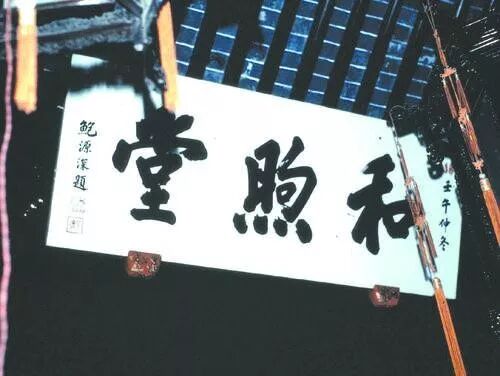 壬午仲冬
和煦堂
鲍源深題